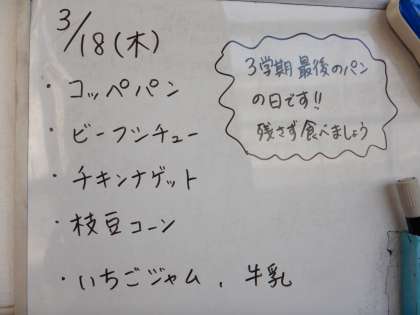 3/18(木)
・コッペパン
・ビーフシチュー
・チキンナゲット
・枝豆コーン
・いちごジャム、牛乳
3学期最後のパン
の日です!!
残さず食べましょう